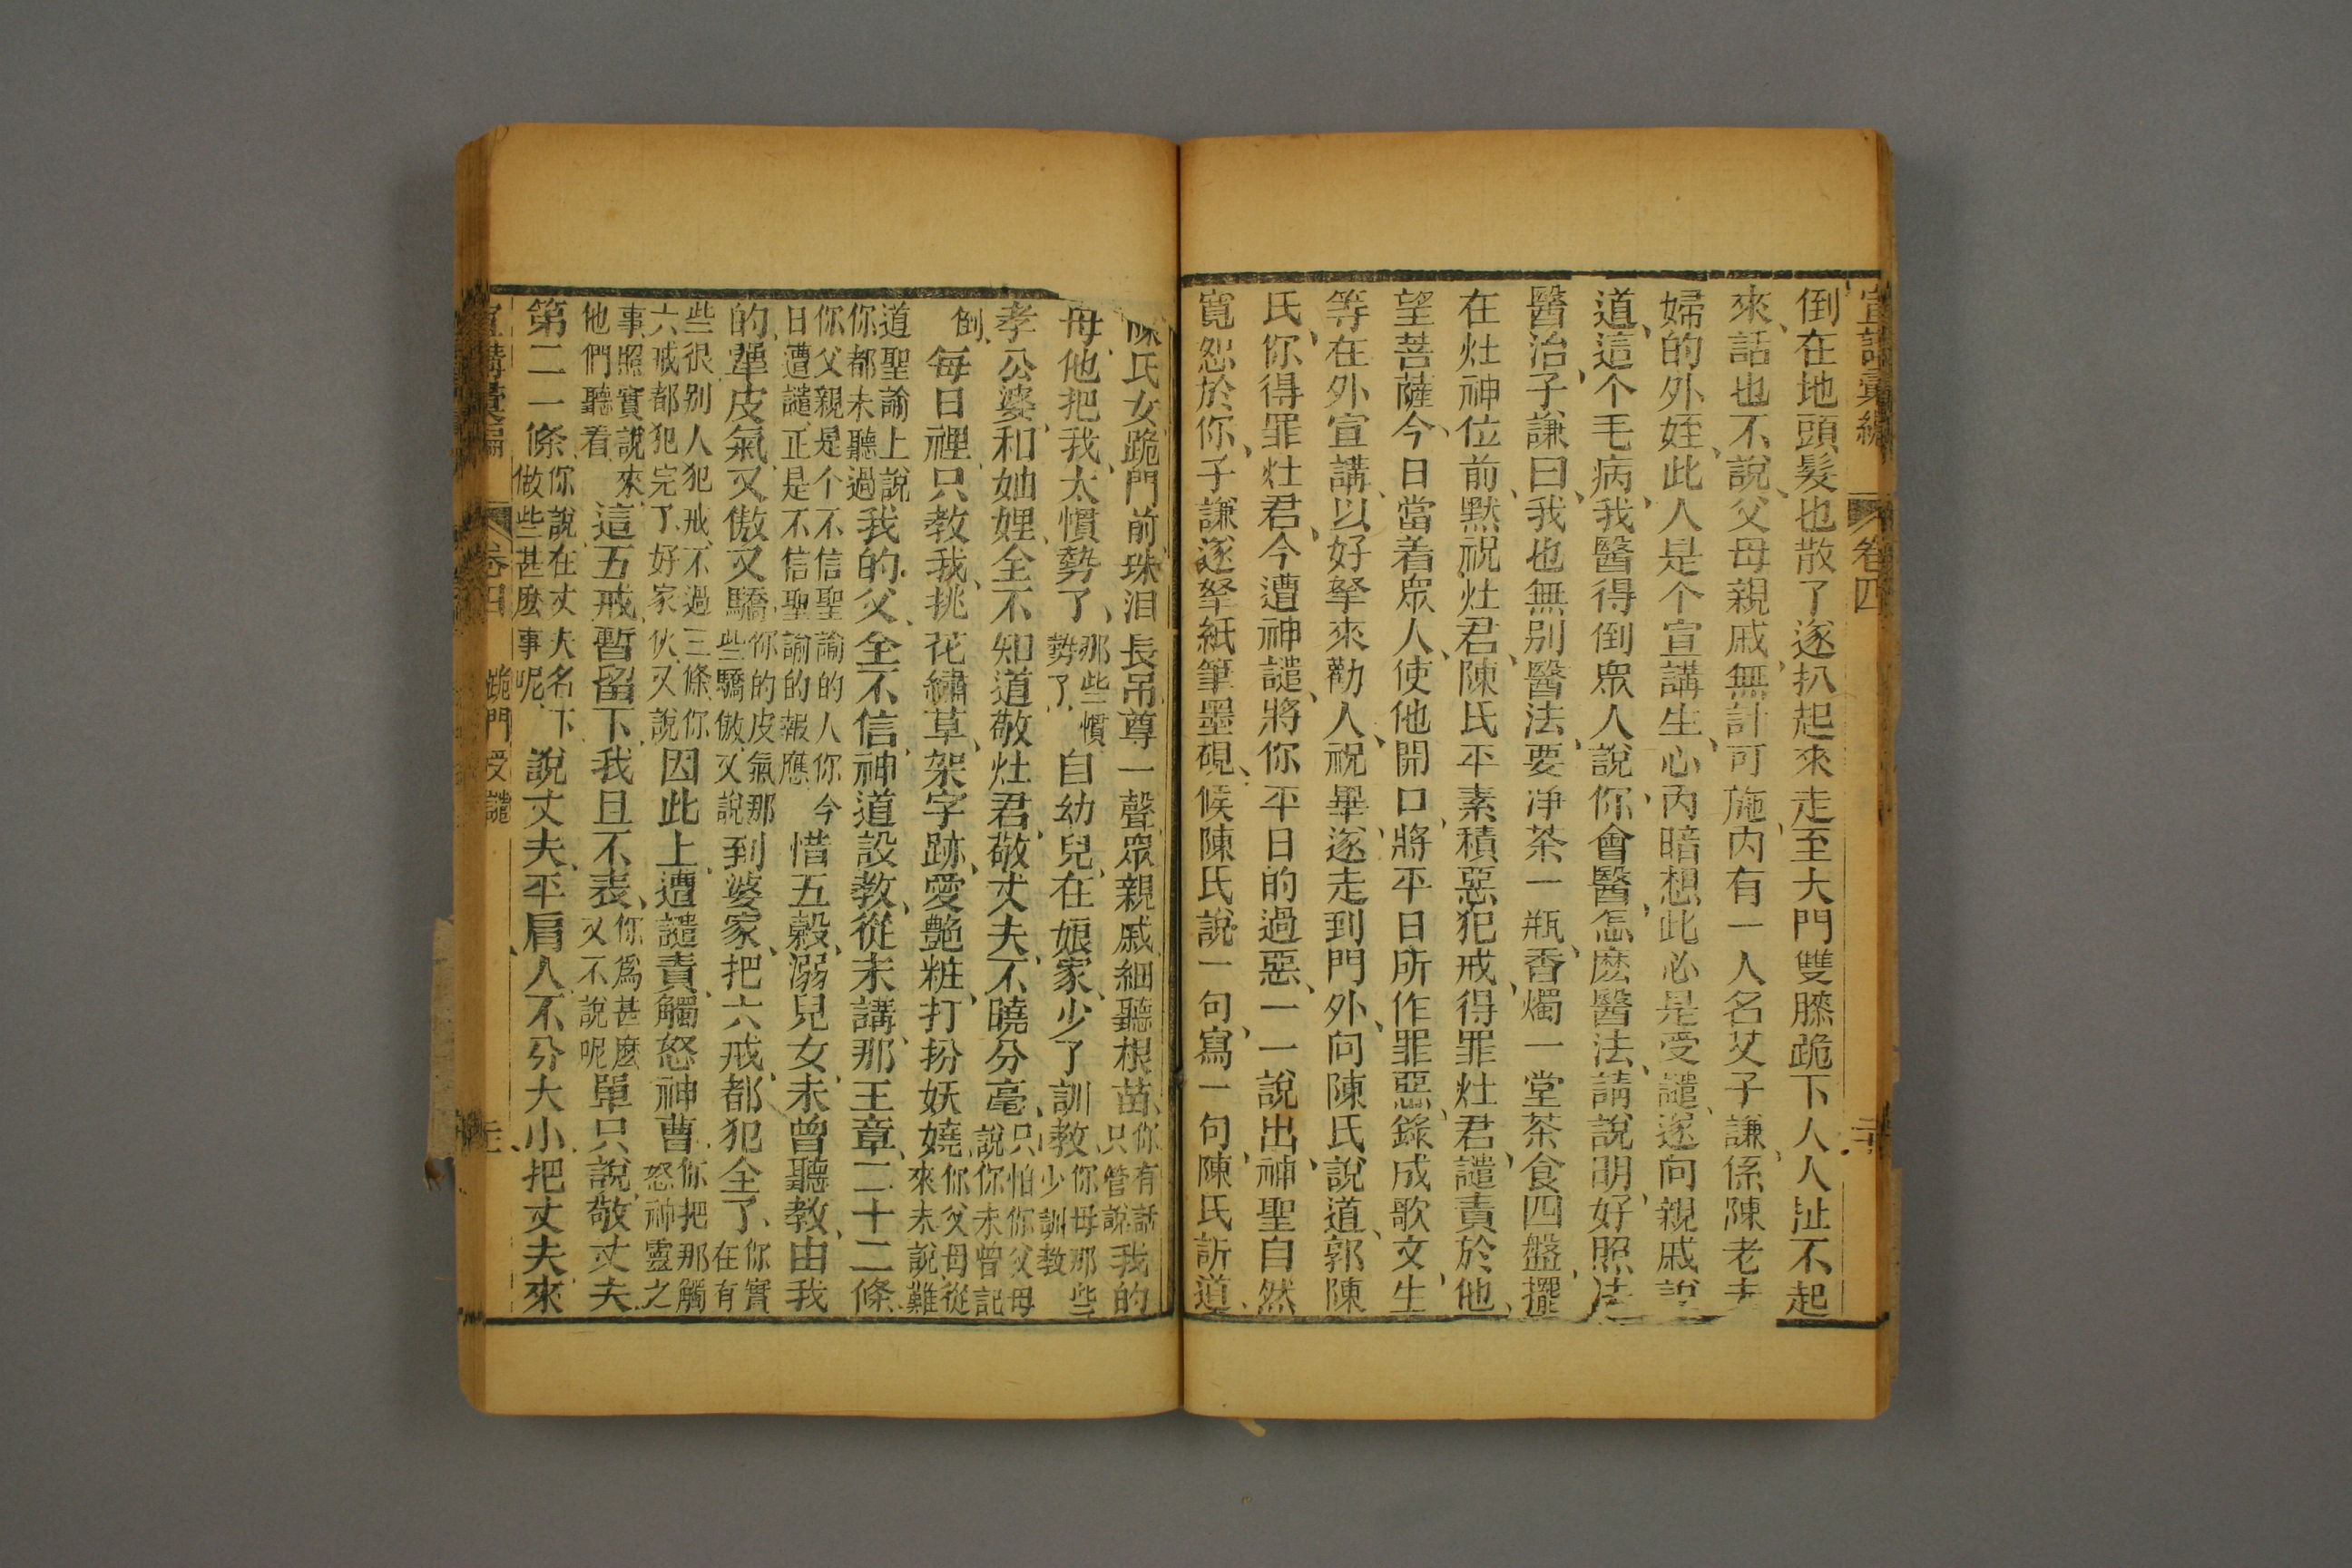 宣講彙編 卷四
倒在地頭髮也散了遂扒起來走至大門雙膝跪下人人扯不起
來、話也不說、父母親戚、無計可施、內有一人名艾子謙、係陳老夫
婦的外姪、此人是个宣講生、心內暗想此必是受譴、遂向親戚說
道、這个毛病、我醫得倒眾人說、你會醫、怎麽醫法、請說明、好照法
醫治、子謙曰、我也無別醫法、要净茶一瓶、香燭一堂茶食四盤、擺
在灶神位前、黙祝灶君、陳氏平素積惡犯戒、得罪灶君、譴責於他、
望菩薩今、日當着眾人、使他開口、將平日所作罪惡、錄成歌文、生
等在外宣講、以好拏來勸人、祝畢、遂走到門外、向陳氏說道、郭陳
氏、你得罪灶君、今遭神譴、將你平日的過惡、一一說出、神聖自然
寬恕於你、子謙遂拏紙筆墨硯、候陳氏說一句、寫一句、陳氏訴道、
陳氏女跪門前珠泪長吊尊一聲眾親戚細聽根苗、你有話只管說我的
母、他把我、太慣勢了、那些慣勢了自幼兒、在娘家、少了訓教、你母那些少訓教
孝公婆、和妯娌、全不知道敬灶君、敬丈夫、不曉分毫、只怕你父母說你未曾記
倒、每日裡、只教我、挑花繡草、架字跡、愛艷粧、打扮妖嬈、你父母從來未說難
道聖諭上說你都未聽過我的父、全不信、神道設教、從未講、那王章、二十二條、
你父親是个不信聖諭的人你今日遭譴、正是不信聖諭的報應惜五穀、溺兒女、未曾聽教、由我
的、犟皮氣、又傲又驕、你的皮氣那些驕傲、又說到婆家、把六戒、都犯全了、你實在有
些很別人犯戒、不過三條、你六戒都犯完了、好家伙、又說因此上、遭譴責、觸怒神曹、你把那觸怒神靈之
事、照實說來、他們聽着這五戒、暫留下、我且不表、你爲甚麽又不說呢單只說、敬丈夫、
第二一條你說、在丈夫名下、做些甚麽事呢、說丈夫、平肩人、不分大小、把丈夫、來
宣講彙編 卷四 跪門受譴